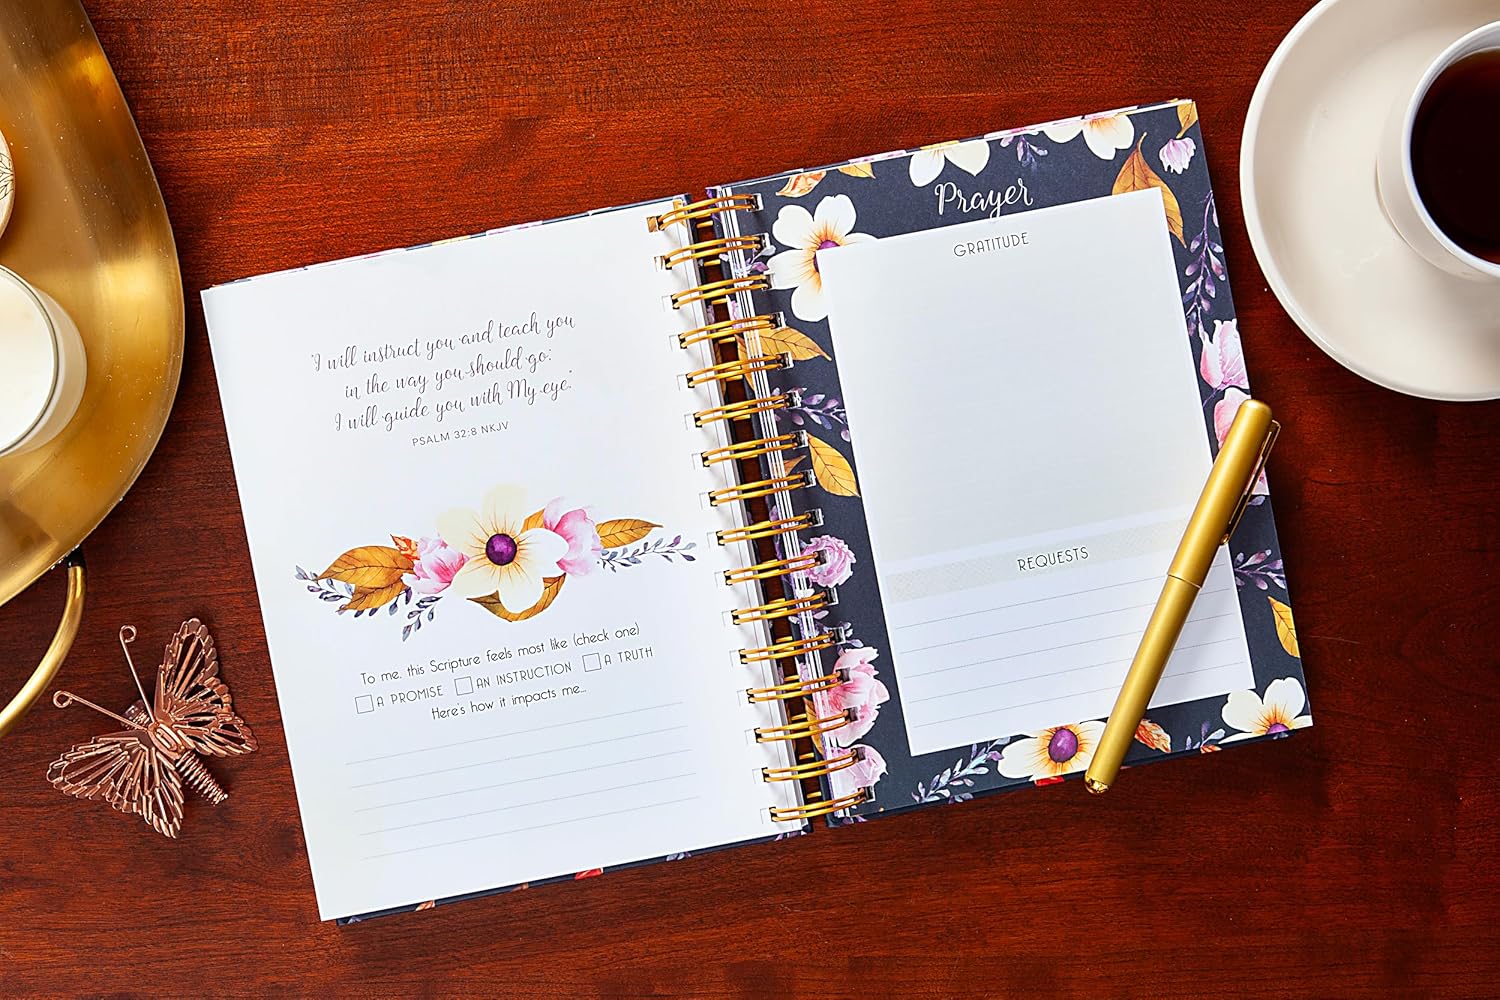 "I will instruct you and teach you
in the way you should go;
I will guide you with My eye."
PSALM 32:8 NKJV
To me, this Scripture feels most like (check one)
A PROMISE AN INSTRUCTION A TRUTH
Here's how it impacts me...
Prayer
GRATITUDE
REQUESTS